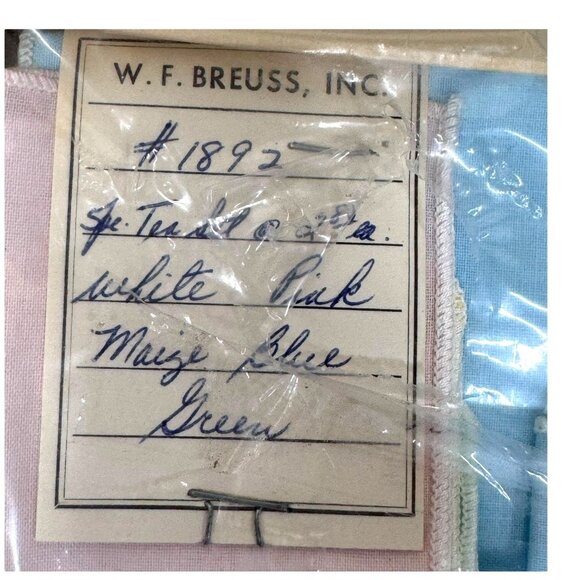 W. F. BREUSS, INC.
# 1892
Tea @ ea.
white Pink
Maize Blue
Green